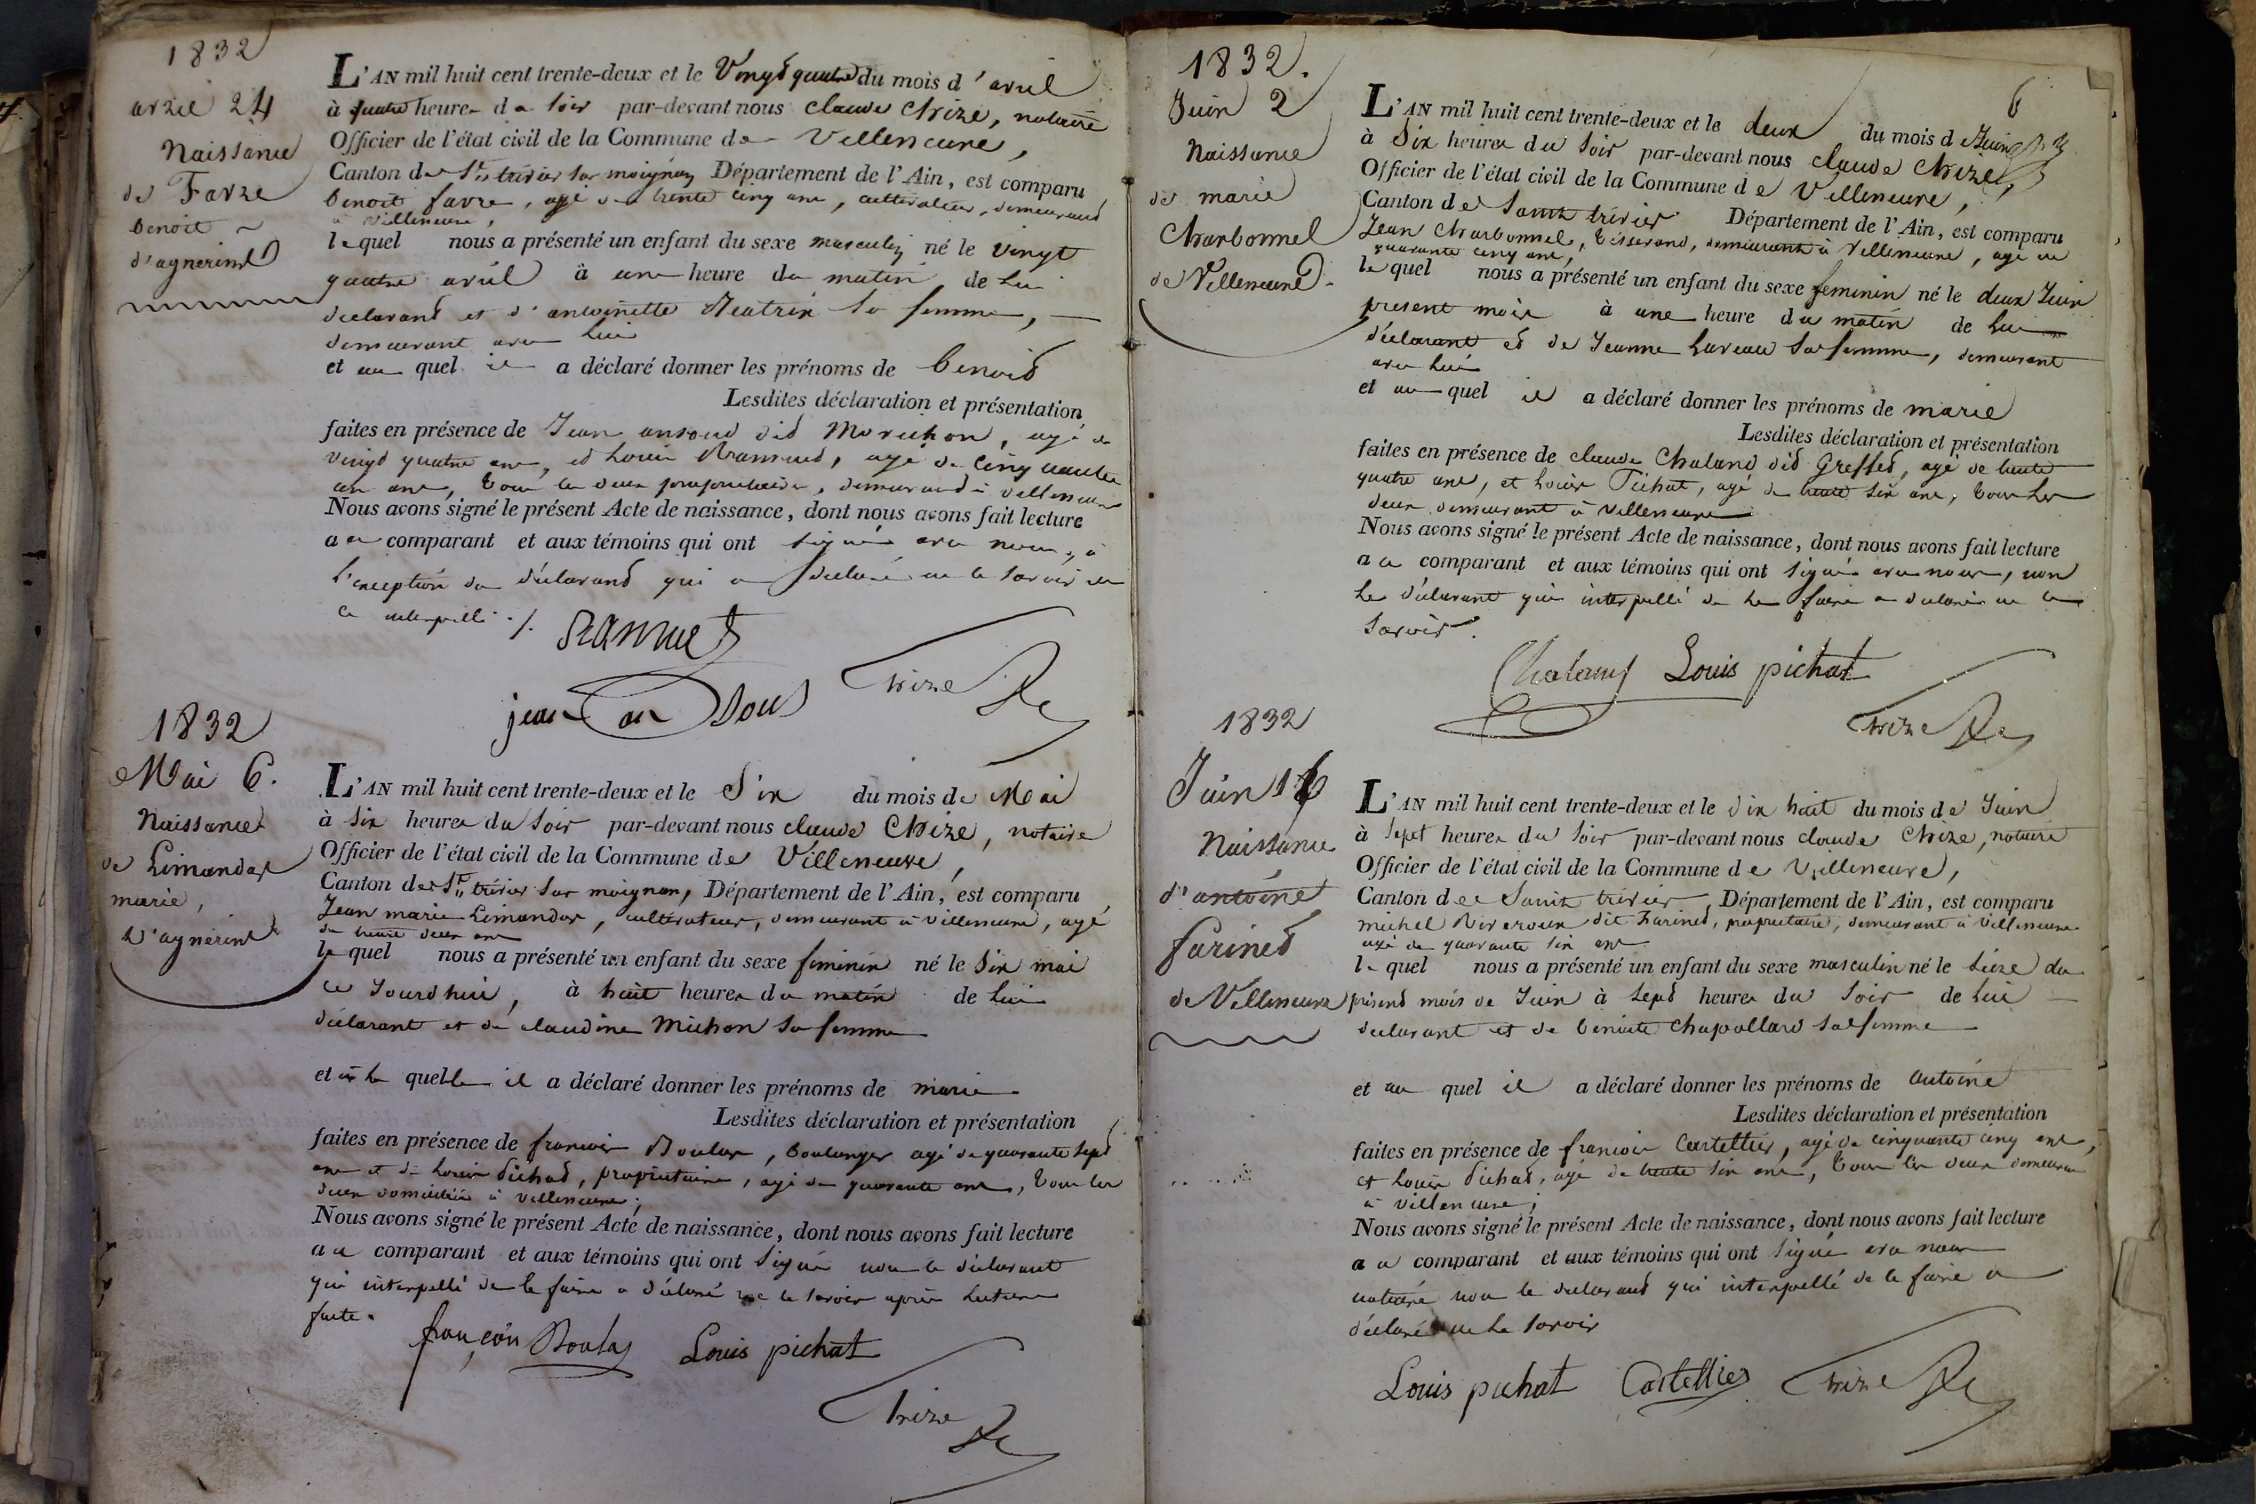 1832
avril 24
Naissance
de Favre
benoit
d'agnerind
L'AN mil huit cent trente-deux et le Vingd quatre du mois d'avril
à quatre heures du soir par-devant nous claude Chize, notaire
Officier de l'état civil de la Commune de Villeneuve,
Canton de St trivier sur moignan, Département de l'Ain, est comparu
benoit favre, agé de trente cinq ans, cultivateur, demeurand
à villeneuve,
lequel nous a présenté un enfant du sexe masculin né le vingt
quatre avril à une heure du matin de lui
declarand et d'antoinette sa femme,
demeurant avec lui
et au quel il a déclaré donner les prénoms de benoid
Lesdites déclaration et présentation
faites en présence de Jean ansoud did Moruchon, agé de
vingd quatre ans, ed Louis agé de cinquante
un ans, tous les deux propriétaires, demeurand à villeneuve
Nous avons signé le présent Acte de naissance, dont nous avons fait lecture
au comparant et aux témoins qui ont signé avec nous, à
l'exception du déclarand qui a déclaré ne le savoir de
ce interpellé ./.
jean an soud Chize
1832
Mai 6.
Naissance
de Limandas
marie,
d'agnerind
L'AN mil huit cent trente-deux et le Six du mois de Mai
à six heures du soir par-devant nous claude Chize, notaire
Officier de l'état civil de la Commune de Villeneuve,
Canton de St trivier sur moignan, Département de l'Ain, est comparu
Jean marie Limandas, cultivateur, demeurant à villeneuve, agé
de trente deux ans
lequel nous a présenté un enfant du sexe feminin né le six mai
ce jourd'hui, à huit heures du matin de lui
déclarant et de claudine Michon sa femme
et à la quelle il a déclaré donner les prénoms de marie
Lesdites déclaration et présentation
faites en présence de francois Boulas, boulanger agé de quarante sepd
ans et de Louis Pichad, propriétaire, agé de quarante ans, tous les
deux domiciliés à villeneuve;
Nous avons signé le présent Acte de naissance, dont nous avons fait lecture
au comparant et aux témoins qui ont signé non le déclarant
qui interpellé de le faire a déclaré ne le savoir après lecture
faite.
françois Boulas Louis pichat
Chize
1832.
Juin 2
Naissance
de marie
Charbonnel
de Villeneuve
6
L'AN mil huit cent trente-deux et le deux du mois de Juin
à Six heures du soir par-devant nous claude Chize,
Officier de l'état civil de la Commune de Villeneuve,
Canton de Saint trivier Département de l'Ain, est comparu
Jean Charbonnel, tisserand, demeurant à Villeneuve, agé de
quarante cinq ans,
lequel nous a présenté un enfant du sexe feminin né le deux Juin
present mois à une heure du matin de lui
déclarant ed de Jeanne Laveau sa femme, demeurant
avec lui
et au quel il a déclaré donner les prénoms de marie
Lesdites déclaration et présentation
faites en présence de claude Chaland did Greffed, agé de trente
quatre ans, et Louis Pichat, agé de trente six ans, tous les
deux demeurant à villeneuve
Nous avons signé le présent Acte de naissance, dont nous avons fait lecture
au comparant et aux témoins qui ont signé avec nous, non
le déclarant qui interpellé de le faire a déclaré ne le
savoir.
Chaland Louis pichat
Chize
1832
Juin 16
Naissance
d'antoine
farined
de Villeneuve
L'AN mil huit cent trente-deux et le dix huit du mois de Juin
à sept heures du soir par-devant nous claude Chize, notaire
Officier de l'état civil de la Commune de Villeneuve,
Canton de Saint trivier, Département de l'Ain, est comparu
michel dit Farined, propriétaire, demeurant à Villeneuve
agé de quarante six ans
lequel nous a présenté un enfant du sexe masculin né le seize du
présend mois de Juin à sepd heures du soir de lui
declarant et de benoite chapolland sa femme
et au quel il a déclaré donner les prénoms de antoine
Lesdites déclaration et présentation
faites en présence de francois Cartellier, agé de cinquante cinq ans,
et Louis Pichad, agé de trente six ans, tous les deux demeuran
à villeneuve;
Nous avons signé le présent Acte de naissance, dont nous avons fait lecture
au comparant et aux témoins qui ont signé avec nous
notaire non le declarand qui interpellé de le faire a
déclaré ne le savoir
Louis pichat Cartellier Chize